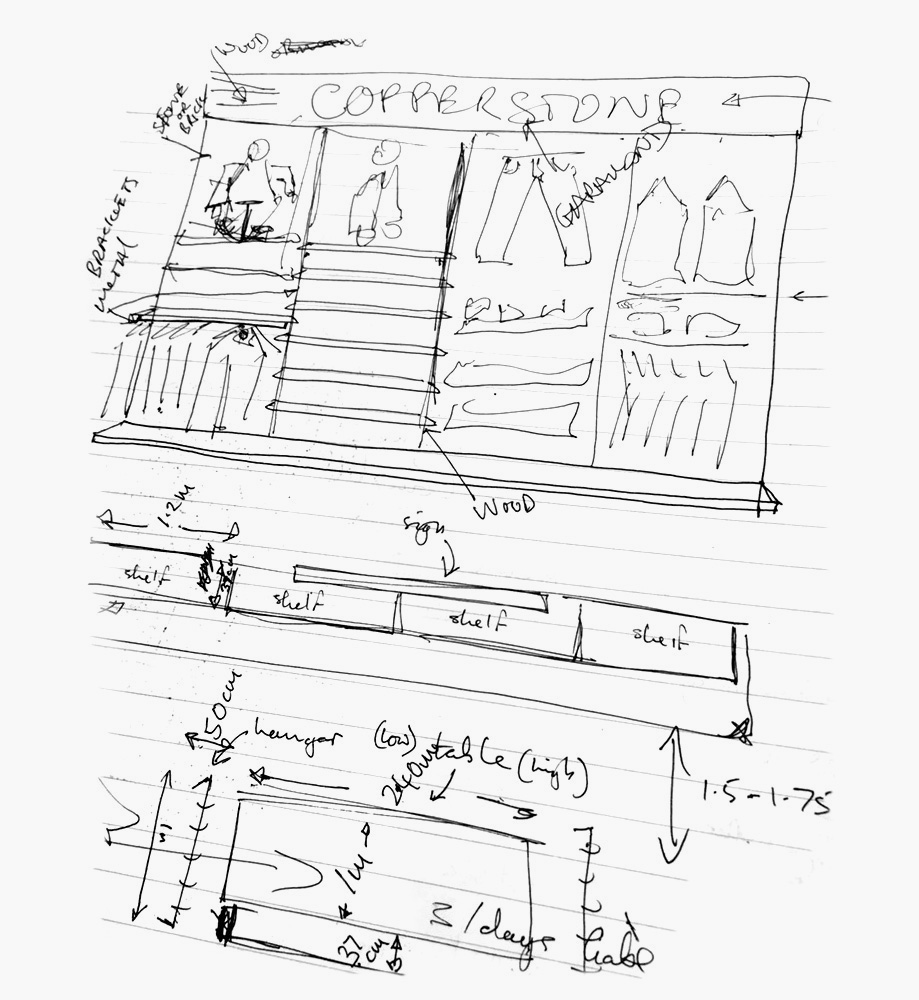 WOOD
COPPERSTONE
STONE
OR
BRICK
GARAMOND
BRACKETS
metal
WOOD
1.2m
sign
shelf
37cm
shelf
shelf
shelf
50cm
hanger
(low)
table (high)
240cm
1.5 - 1.75
1m
37
cm